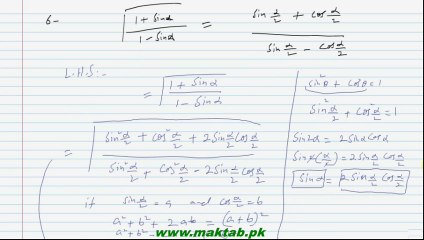 6- √((1 + Sinα)/(1 - Sinα)) = (Sin α/2 + Cos α/2)/(Sin α/2 - Cos α/2)
L.H.S:-
= √((1 + Sinα)/(1 - Sinα))
= √((Sin² α/2 + Cos² α/2 + 2Sin α/2 Cos α/2)/(Sin² α/2 + Cos² α/2 - 2Sin α/2 Cos α/2))
if Sin α/2 = a and Cos α/2 = b
a² + b² + 2ab = (a+b)²
a² + b²
Sin²θ + Cos²θ = 1
Sin² α/2 + Cos² α/2 = 1
Sin2α = 2Sinα Cosα
Sin2(α/2) = 2Sin α/2 Cos α/2
Sinα = 2Sin α/2 Cos α/2
www.maktab.pk